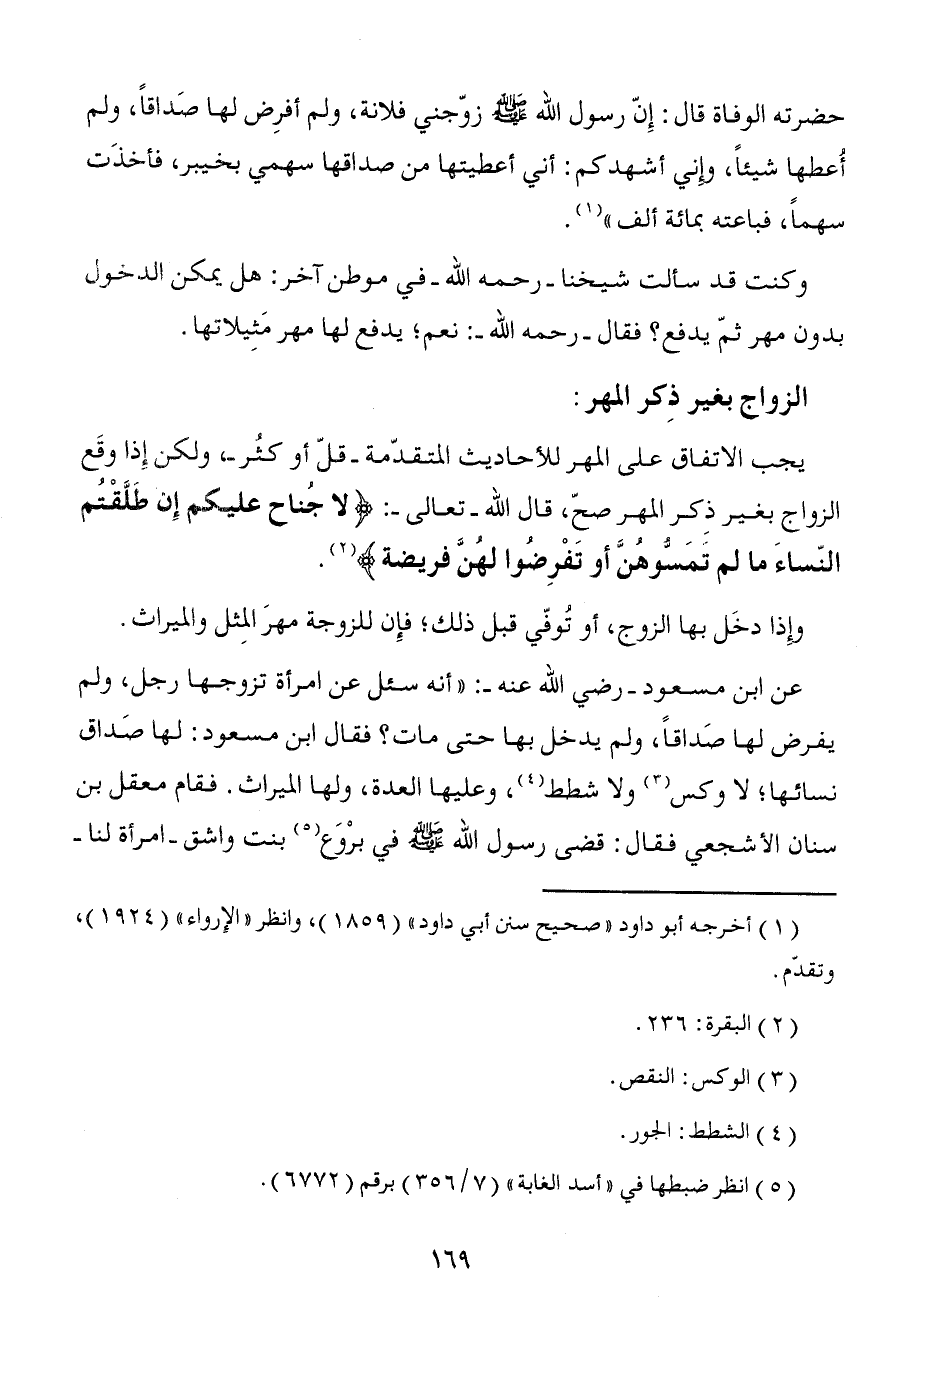 حضرته الوفاة قال: إنّ رسول الله ﷺ زوّجني فلانة، ولم أفرِض لها صَداقاً، ولم
أُعطها شيئاً، وإني أشهدكم: أني أعطيتها من صداقها سهمي بخيبر، فأخذَت
سهماً، فباعته بمائة ألف»(١).
وكنت قد سألت شيخنا ـ رحمه الله ـ في موطن آخر: هل يمكن الدخول
بدون مهر ثمّ يدفع؟ فقال ـ رحمه الله ـ: نعم؛ يدفع لها مهر مَثِيلاتها.
الزواج بغير ذِكر المهر:
يجب الاتفاق على المهر للأحاديث المتقدّمة ـ قلّ أو كثُر ـ، ولكن إذا وقَع
الزواج بغير ذِكر المهر صحّ، قال الله ـ تعالى ـ: ﴿لا جُناح عليكم إن طَلَّقْتُم
النّساءَ ما لم تَمَسُّوهُنَّ أو تَفْرِضُوا لهُنَّ فريضة﴾(٢).
وإذا دخَل بها الزوج، أو تُوفّي قبل ذلك؛ فإن للزوجة مهرَ المِثل والميراث.
عن ابن مسعود ـ رضي الله عنه ـ: «أنه سئل عن امرأة تزوجها رجل، ولم
يفرض لها صَداقاً، ولم يدخل بها حتى مات؟ فقال ابن مسعود: لها صَداق
نسائها؛ لا وكس(٣) ولا شطط(٤)، وعليها العدة، ولها الميراث. فقام معقل بن
سنان الأشجعي فقال: قضى رسول الله ﷺ في برْوَع(٥) بنت واشق ـ امرأة لنا ـ
(١) أخرجه أبو داود «صحيح سنن أبي داود» (١٨٥٩)، وانظر «الإرواء» (١٩٢٤)،
وتقدّم.
(٢) البقرة: ٢٣٦.
(٣) الوكس: النقص.
(٤) الشطط: الجور.
(٥) انظر ضبطها في «أسد الغابة» (٧/٣٥٦) برقم (٦٧٧٢).
١٦٩